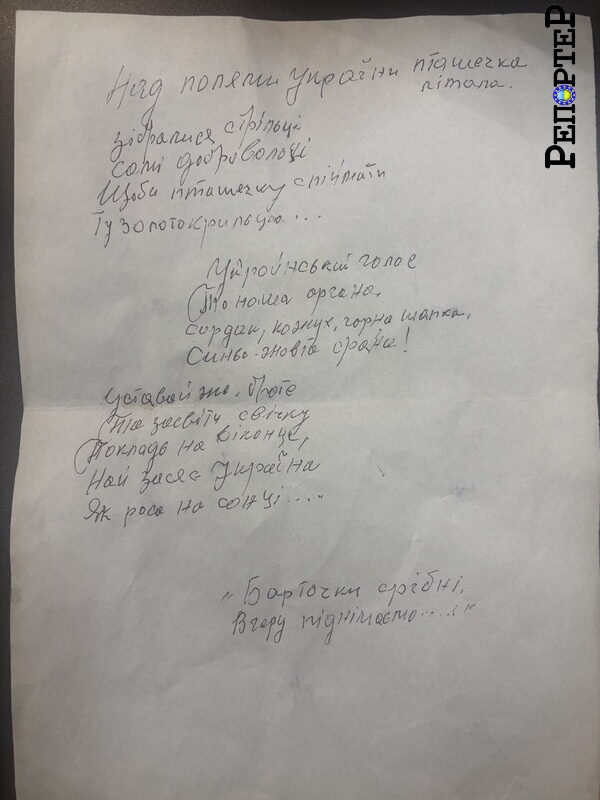 РЕПОРТЕР
Над полями України пташечка
літала.
Зібралися стрільці
Самі добровольці
Щоби пташечку спіймати
Ту золотокрильцю...
Український голос
То наша органа.
Сардак, кожух, чорна шапка,
Синьо-жовта франа!
Уставай же, брате
Та засвіти свічку
Покладь на віконце,
Най засяє Україна
Як роса на сонці....
"Барточки срібні,
Вгору піднімаємо....."